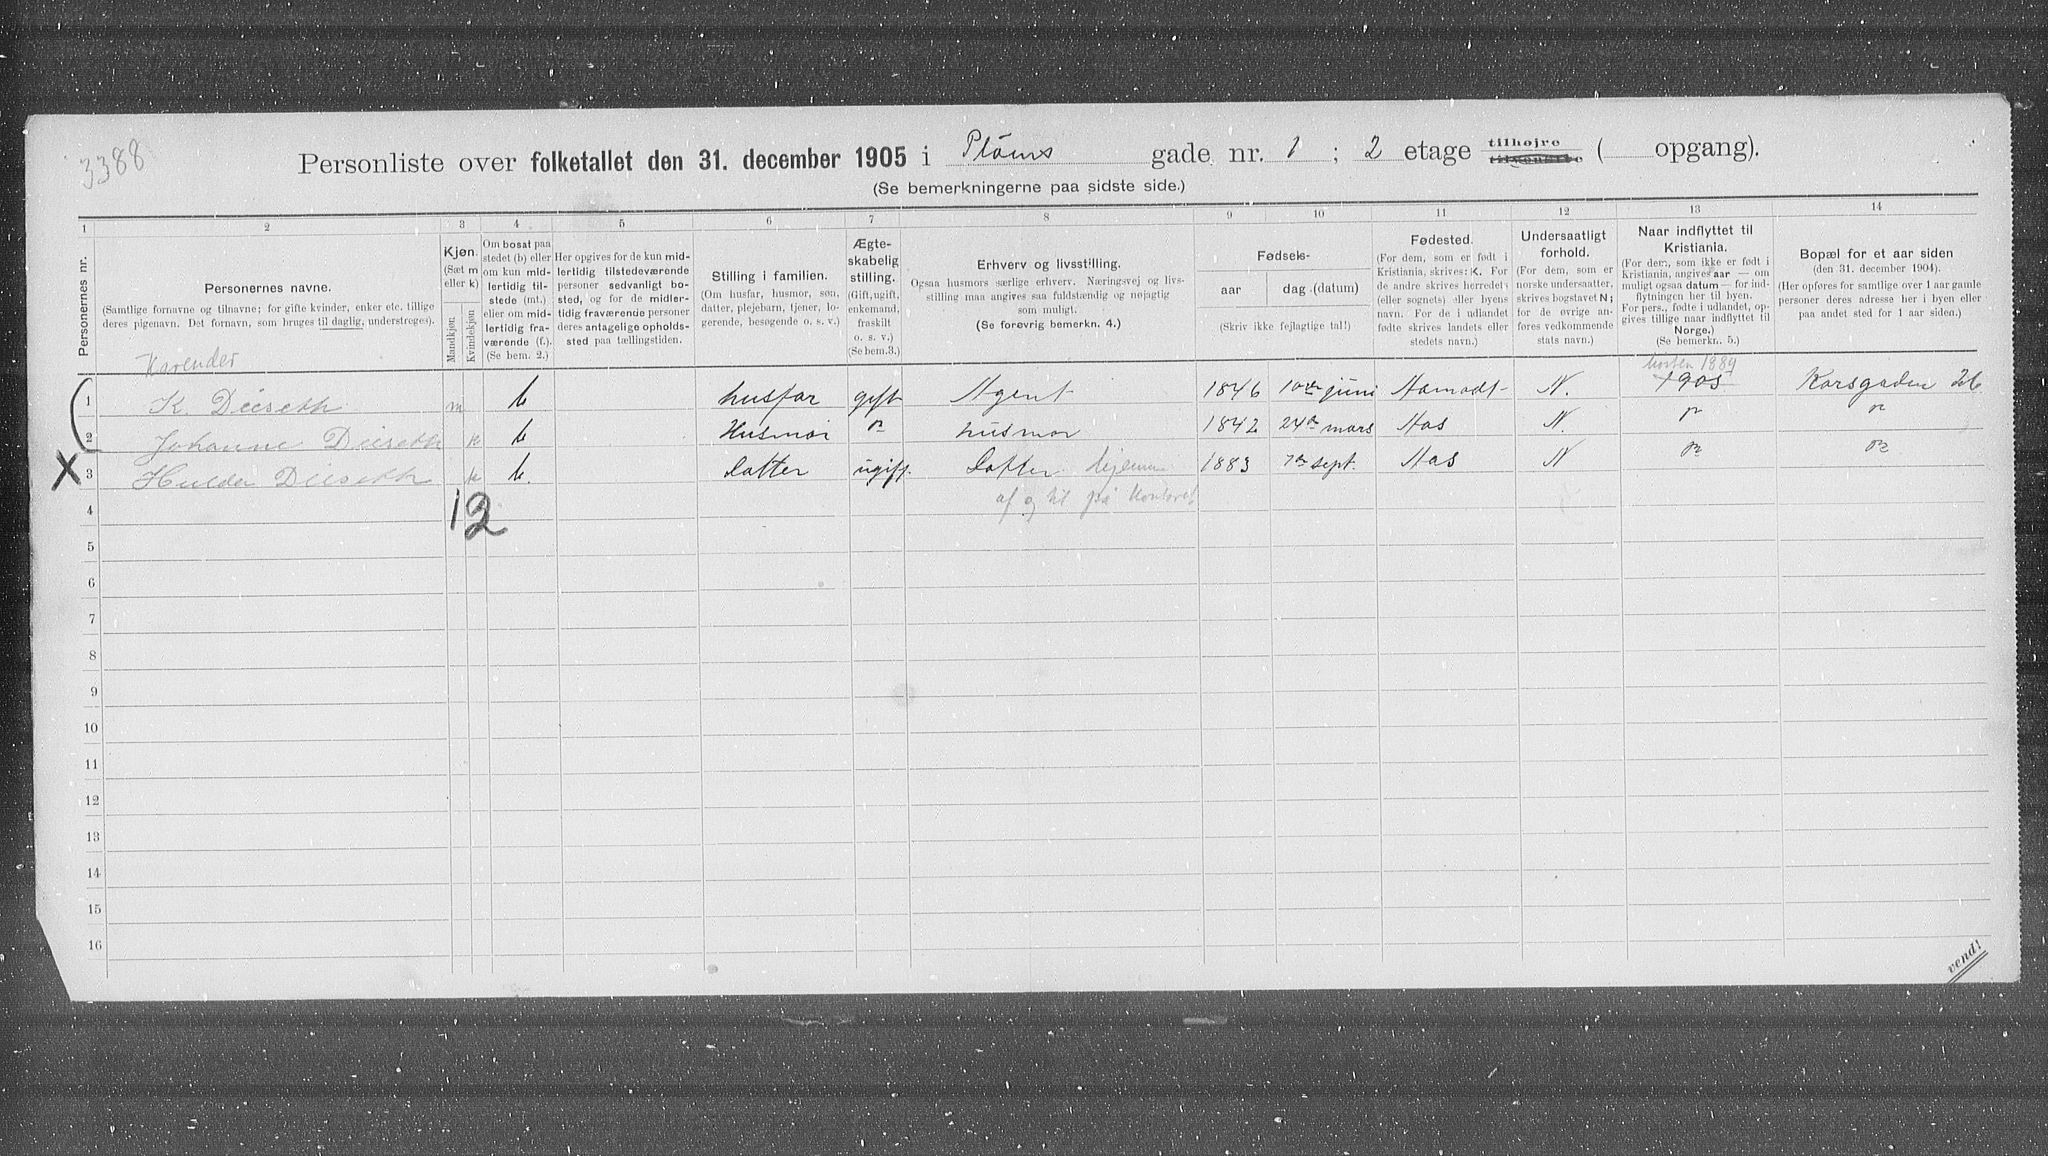 3388
Personliste over folketallet den 31. december 1905 i Pløens gade nr. 1 ; 2 etage tilhøjre tilvenstre ( opgang).
(Se bemerkningerne paa sidste side.)
1 2 3 4 5 6 7 8 9 10 11 12 13 14
Personernes nr.
Personernes navne.
(Samtlige fornavne og tilnavne; for gifte kvinder, enker etc. tillige
deres pigenavn. Det fornavn, som bruges til daglig, understreges).
Kjøn.
(Sæt m
eller k)
Mandkjøn.
Kvindekjøn
Om bosat paa
stedet (b) eller
om kun mid-
lertidig til-
stede (mt.)
eller om mid-
lertidig fra-
værende (f.).
(Se bem. 2.)
Her opgives for de kun mid-
lertidig tilstedeværende
personer sedvanligt bo-
sted, og for de midler-
tidig fraværende personer
deres antagelige opholds-
sted paa tællingstiden.
Stilling i familien.
(Om husfar, husmor, søn,
datter, plejebarn, tjener, lo-
gerende, besøgende o. s. v.)
Ægte-
skabelig
stilling.
(Gift, ugift,
enkemand,
fraskilt
o. s. v.)
(Se bem. 3.)
Erhverv og livsstilling.
Ogsaa husmors særlige erhverv. Næringsvej og livs-
stilling maa angives saa fuldstændig og nøjagtig
som muligt.
(Se forøvrig bemerkn. 4.)
Fødsels-
aar dag (datum)
(Skriv ikke fejlagtige tal!)
Fødested.
(For dem, som er født i
Kristiania, skrives: K. For
de andre skrives herredets
(eller sognets) eller byens
navn. For de i udlandet
fødte skrives landets eller
stedets navn.)
Undersaatligt
forhold.
(For dem, som er
norske undersaatter,
skrives bogstavet N;
for de øvrige an-
føres vedkommende
stats navn.)
Naar indflyttet til
Kristiania.
(For dem, som ikke er født i
Kristiania, angives aar — om
muligt ogsaa datum — for ind-
flytningen her til byen.
For pers., fødte i udlandet, op-
gives tillige naar indflyttet til
Norge.)
(Se bemerkn. 5.)
Bopæl for et aar siden
(den 31. december 1904).
(Her opføres for samtlige over 1 aar gamle
personer deres adresse her i byen eller
paa andet sted for 1 aar siden.)
Karender
høsten 1889
1 K. Diiseth m b husfar gift Agent 1846 10de juni Aamodt N. 1905 Korsgaden 26
2 Johanne Diiseth k b Husmor " husmor 1842 24de mars Aas N. " "
X 3 Hulda Diiseth k b. Datter ugift. Datter hjemme 1883 7de sept. Aas N " "
af og til på kontoret
12
4
5
6
7
8
9
10
11
12
13
14
15
16
vend!